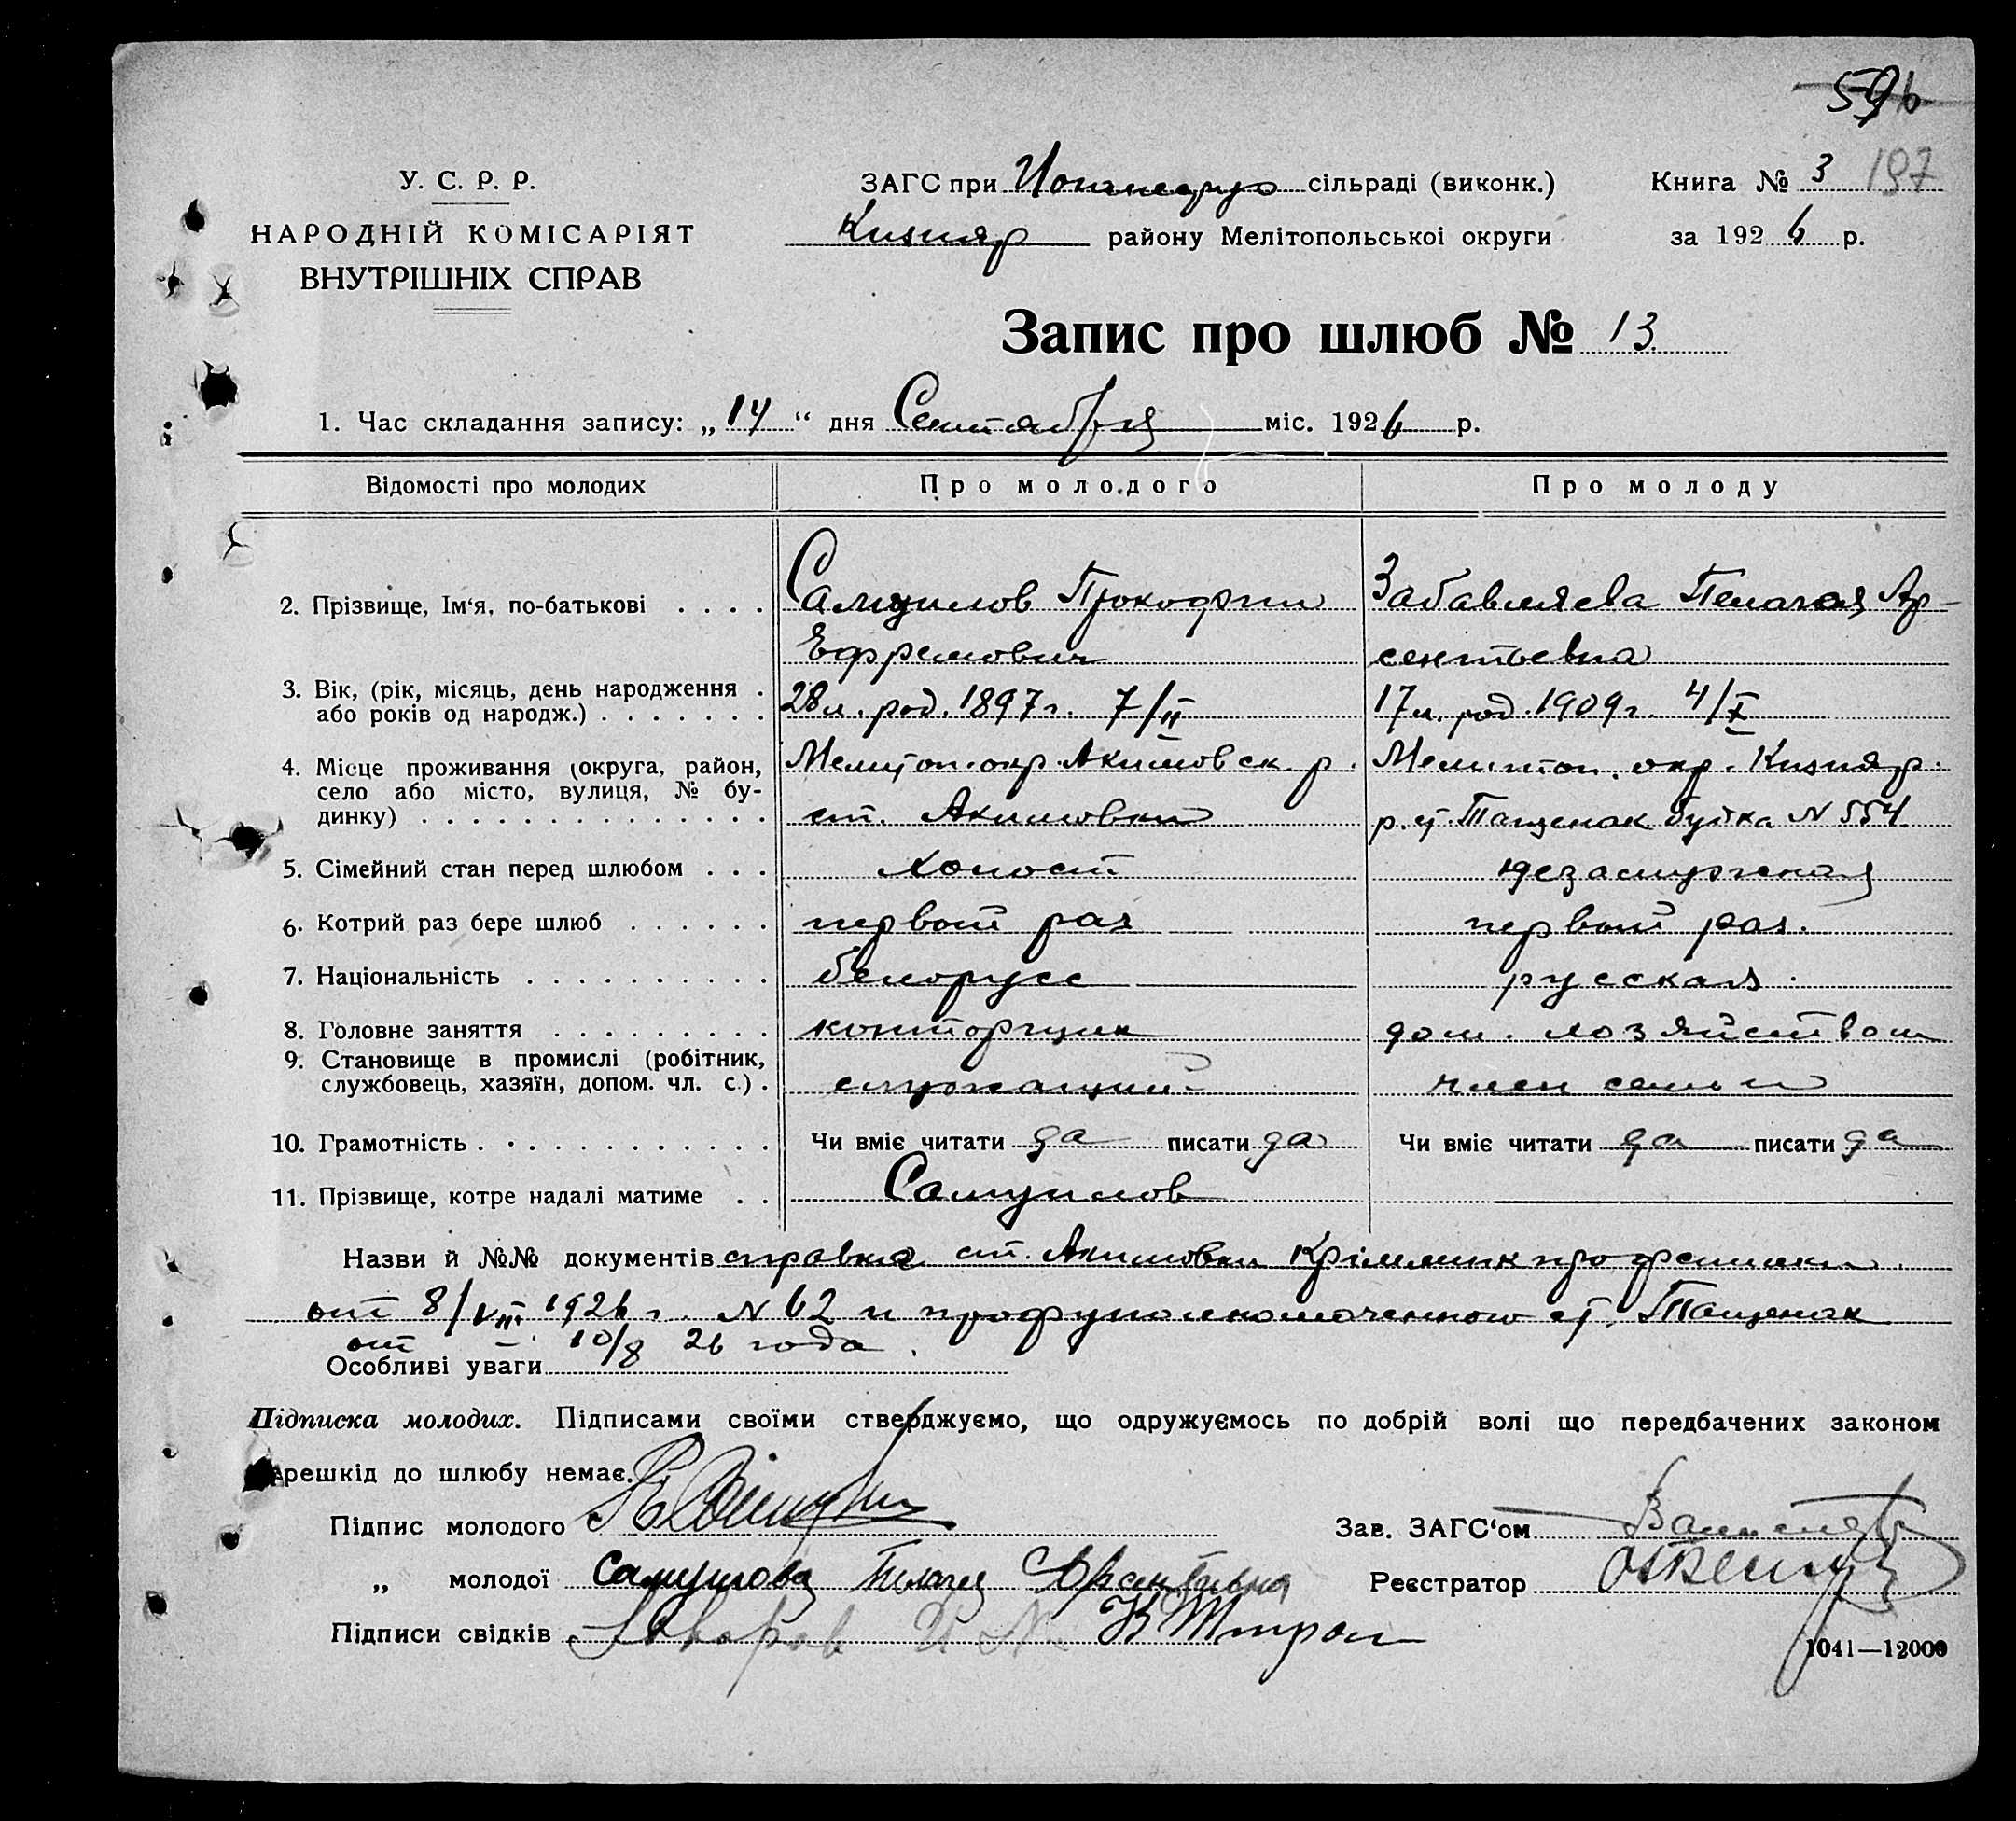 596
У. С. Р. Р.
НАРОДНІЙ КОМІСАРІЯТ
ВНУТРІШНІХ СПРАВ
ЗАГС при сільраді (виконк.)
Кизияр району Мелітопольської округи
Книга № 3 197
за 1926 р.
Запис про шлюб № 13.
1. Час складання запису: „14“ дня Сентября міс. 1926 р.
Відомості про молодих Про молодого Про молоду
2. Прізвище, Ім‘я, по-батькові . . . . Самуилов Прокофии Забавляева Пелагея Ар-
Ефремович сентьевна
3. Вік, (рік, місяць, день народження . 28 л. род. 1897 г. 7/II 17 л. род. 1909 г. 4/X
або років од народж.) . . . . . . .
4. Місце проживання (округа, район, Мелитоп. окр. Акимовск. р. Мелитоп. окр. Кизияр.
село або місто, вулиця, № бу-
динку) . . . . . . . . . . . . . . ст. Акимовки р. ст. Тащенак будка N 554.
5. Сімейний стан перед шлюбом . . . холост незамужная
6. Котрий раз бере шлюб . . . . . . первый раз первый раз.
7. Національність . . . . . . . . . . белорусс русская.
8. Головне заняття . . . . . . . . . конторщик дом. хозяйством
9. Становище в промислі (робітник,
службовець, хазяїн, допом. чл. с.) . служащий член семьи
10. Грамотність . . . . . . . . . . . . Чи вміє читати да писати да Чи вміє читати да писати да
11. Прізвище, котре надалі матиме . . Самуилов
Назви й №№ документів справка ст. Акимовки
от 8/VIII 1926 г. N 62 и профуполномоченного ст. Тащенак
от 10/8 26 года.
Особливі уваги
Підписка молодих. Підписами своїми стверджуємо, що одружуємось по добрій волі що передбачених законом
перешкід до шлюбу немає.
Підпис молодого
Зав. ЗАГС‘ом
„ молодої Самуилова
Реєстратор
Підписи свідків
1041—12000